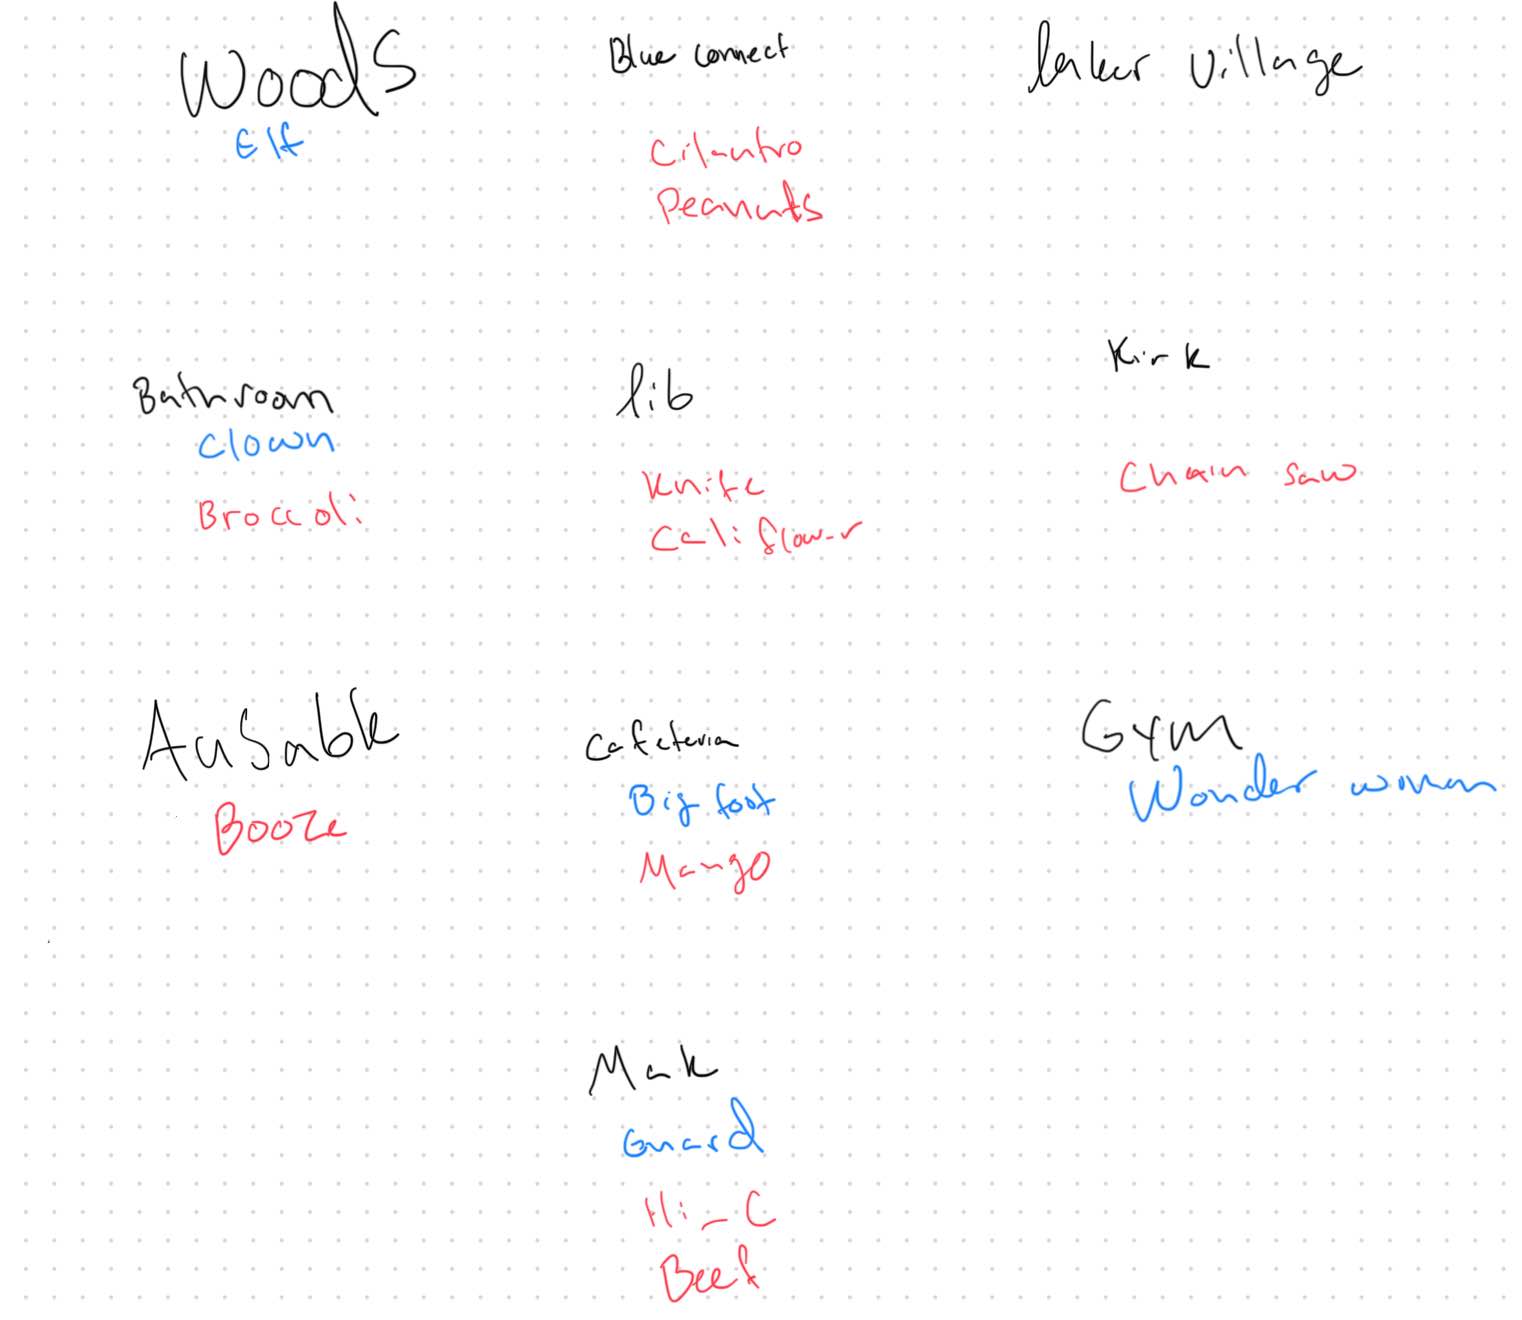 Woods
Elf
Blue connect
Cilantro
Peanuts
laker village
Bathroom
Clown
Broccoli
lib
Knife
Califlower
Kirk
Chain saw
AuSable
Booze
Cafeteria
Big foot
Mango
Gym
Wonder woman
Mak
Guard
Hi_C
Beef